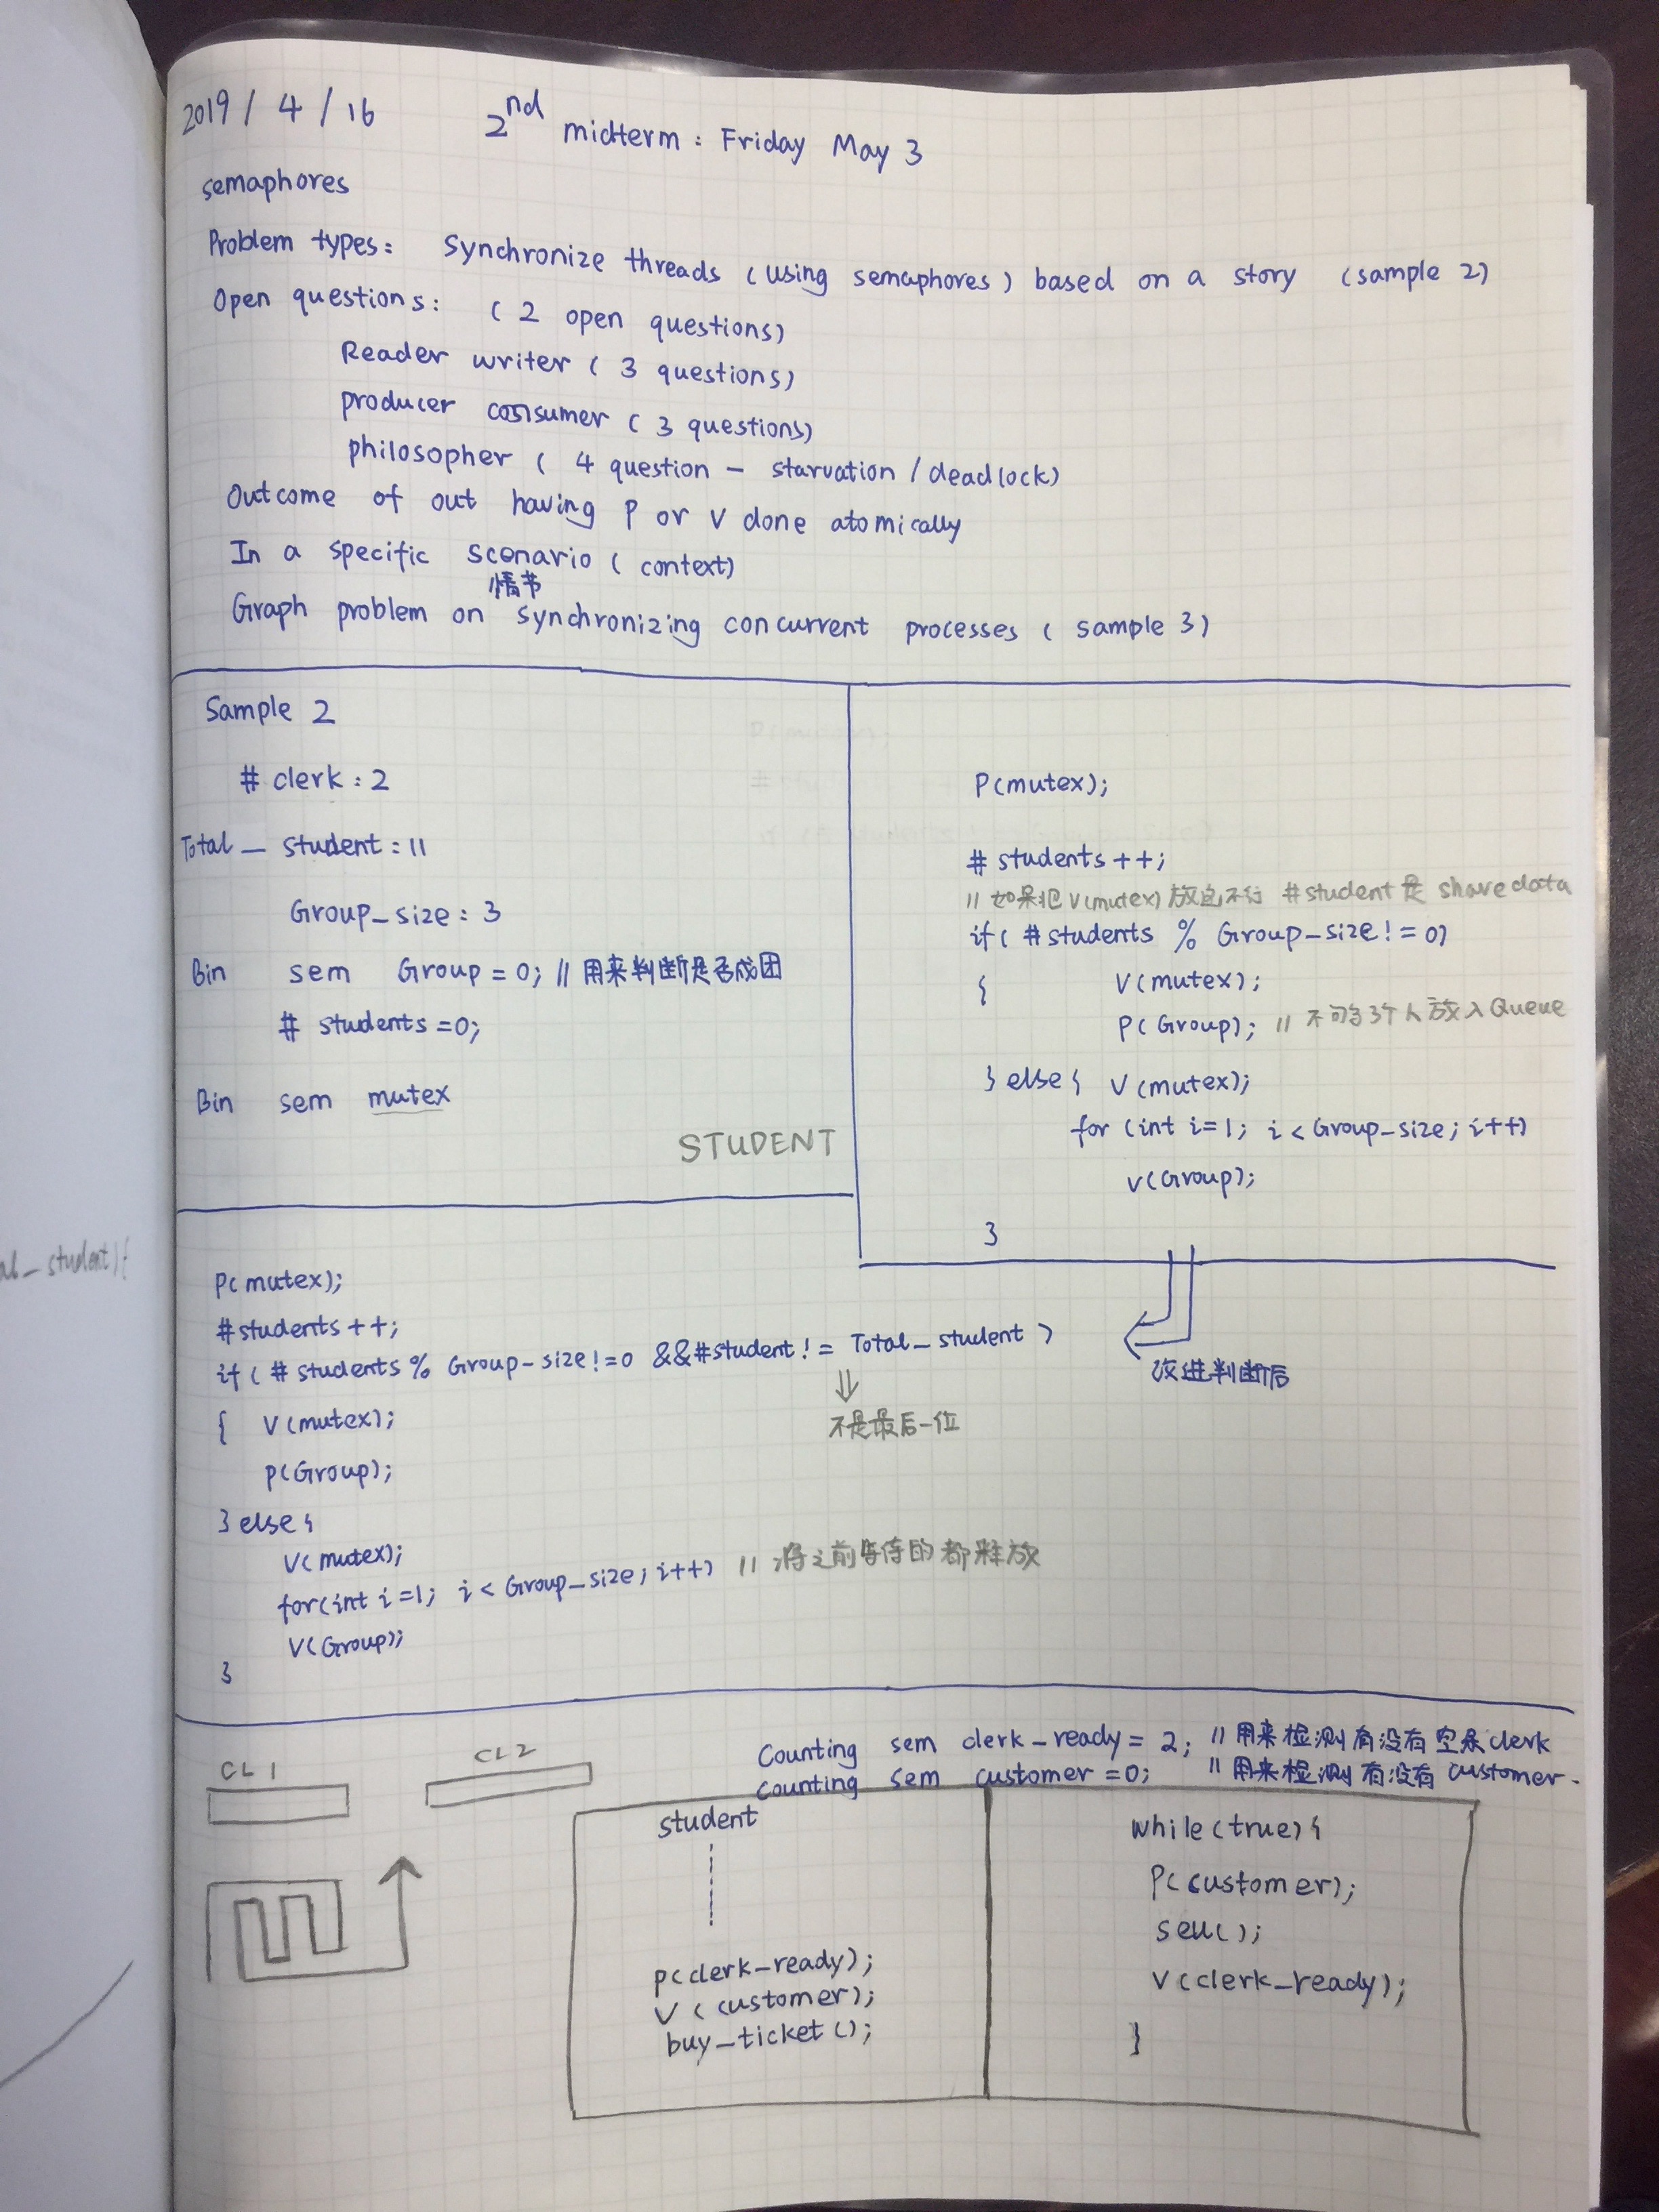 2019 / 4 / 16 2nd midterm : Friday May 3
semaphores
Problem types: Synchronize threads (using semaphores) based on a story (sample 2)
Open questions: (2 open questions)
Reader writer (3 questions)
producer consumer (3 questions)
philosopher (4 question - starvation / deadlock)
Outcome of out having P or V done atomically
In a specific scenario (context)
情节
Graph problem on synchronizing concurrent processes (sample 3)
Sample 2
# clerk : 2
Total_student : 11
Group_size : 3
Bin sem Group = 0; // 用来判断是否成团
# students = 0;
Bin sem mutex
STUDENT
P(mutex);
# students ++;
// 如果把 V(mutex) 放这不行 #student 是 share data
if( #students % Group_size != 0)
{ V(mutex);
P(Group); // 不够3个人放入Queue
} else { V(mutex);
for (int i=1; i < Group_size; i++)
V(Group);
}
P(mutex);
#students ++;
if( # students % Group-size != 0 && #student != Total_student )
改进判断后
不是最后一位
{ V(mutex);
P(Group);
} else {
V(mutex);
for(int i=1; i < Group_size; i++) // 将之前等待的都释放
V(Group);
}
CL1 CL2
Counting sem clerk_ready = 2; // 用来检测有没有空余clerk
counting sem customer = 0; // 用来检测有没有customer.
student
P(clerk_ready);
V(customer);
buy_ticket();
while(true){
P(customer);
sell();
V(clerk_ready);
}
al_student){